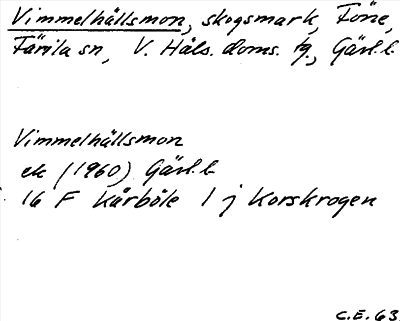 Vimmelhällsmon, skogsmark, Föne,
Färila sn, V. Häls. doms. tg., Gävl. l.
Vimmelhällsmon
ek (1960) Gävl. l.
16 F Kårböle 1 j Korskrogen
C.E. 63